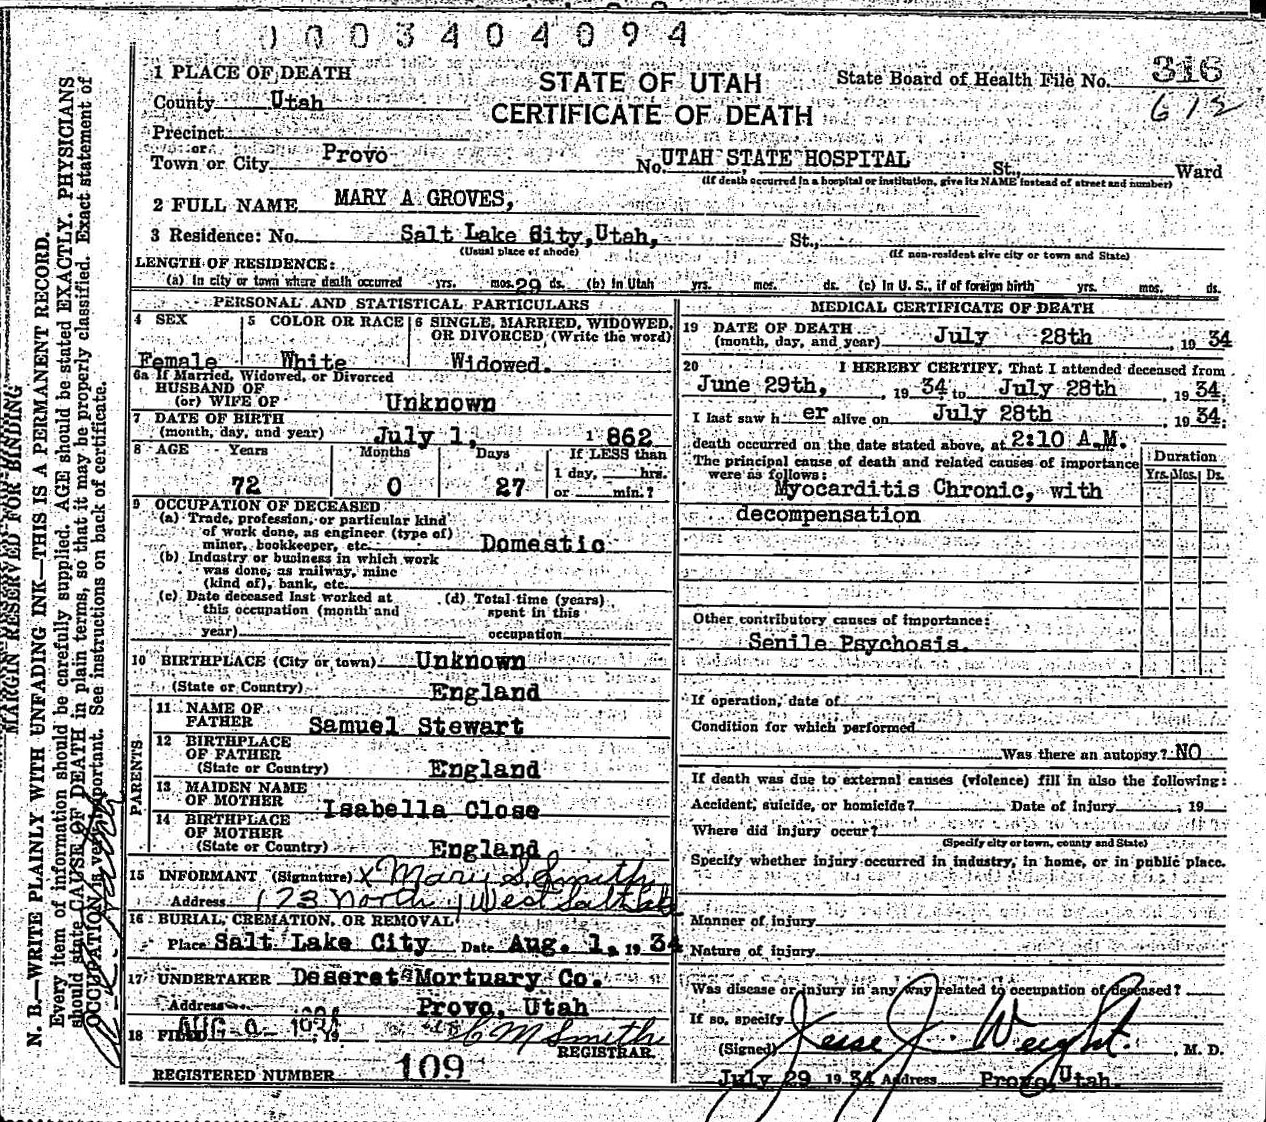 003404094
1 PLACE OF DEATH
STATE OF UTAH
State Board of Health File No. 316
County Utah
CERTIFICATE OF DEATH
612
Precinct
or
Town or City Provo No. UTAH STATE HOSPITAL St., Ward
(If death occurred in a hospital or institution, give its NAME instead of street and number)
2 FULL NAME MARY A GROVES,
3 Residence: No. Salt Lake City, Utah, St.,
(Usual place of abode) (If non-resident give city or town and State)
LENGTH OF RESIDENCE:
(a) In city or town where death occurred yrs. mos. 29 ds. (b) In Utah yrs. mos. ds. (c) In U. S., if of foreign birth yrs. mos. ds.
PERSONAL AND STATISTICAL PARTICULARS
4 SEX
Female
5 COLOR OR RACE
White
6 SINGLE, MARRIED, WIDOWED, OR DIVORCED (Write the word)
Widowed.
6a If Married, Widowed, or Divorced
HUSBAND OF
(or) WIFE OF Unknown
7 DATE OF BIRTH
(month, day, and year) July 1, 1862
8 AGE Years Months Days If LESS than
1 day, hrs.
72 0 27 or min.?
9 OCCUPATION OF DECEASED
(a) Trade, profession, or particular kind
of work done, as engineer (type of)
miner, bookkeeper, etc. Domestic
(b) Industry or business in which work
was done, as railway, mine
(kind of), bank, etc.
(c) Date deceased last worked at
this occupation (month and
year)
(d) Total time (years)
spent in this
occupation
10 BIRTHPLACE (City or town) Unknown
(State or Country) England
PARENTS
11 NAME OF
FATHER Samuel Stewart
12 BIRTHPLACE
OF FATHER
(State or Country) England
13 MAIDEN NAME
OF MOTHER Isabella Close
14 BIRTHPLACE
OF MOTHER
(State or Country) England
15 INFORMANT (Signature) x Mary S. Smith
Address 173 North 1 West Salt Lake
16 BURIAL, CREMATION, OR REMOVAL
Place Salt Lake City Date Aug. 1, 1934
17 UNDERTAKER Deseret Mortuary Co.
Address Provo, Utah
18 FILED AUG 1934, 19 M Smith
REGISTRAR.
REGISTERED NUMBER 109
MEDICAL CERTIFICATE OF DEATH
19 DATE OF DEATH
(month, day, and year) July 28th, 1934
20 I HEREBY CERTIFY, That I attended deceased from
June 29th, 1934 to July 28th, 1934;
I last saw h er alive on July 28th, 1934;
death occurred on the date stated above, at 2:10 A.M.
The principal cause of death and related causes of importance
were as follows:
Duration
Yrs. Mos. Ds.
Myocarditis Chronic, with
decompensation
Other contributory causes of importance:
Senile Psychosis.
If operation, date of
Condition for which performed
Was there an autopsy? NO
If death was due to external causes (violence) fill in also the following:
Accident, suicide, or homicide? Date of injury, 19
Where did injury occur?
(Specify city or town, county and State)
Specify whether injury occurred in industry, in home, or in public place.
Manner of injury
Nature of injury
Was disease or injury in any way related to occupation of deceased?
If so, specify
(Signed) Jesse J. Weight, M. D.
July 29 1934 Address Provo, Utah.
MARGIN RESERVED FOR BINDING
N. B.—WRITE PLAINLY WITH UNFADING INK—THIS IS A PERMANENT RECORD.
Every item of information should be carefully supplied. AGE should be stated EXACTLY. PHYSICIANS
should state CAUSE OF DEATH in plain terms, so that it may be properly classified. Exact statement of
OCCUPATION is very important. See instructions on back of certificate.